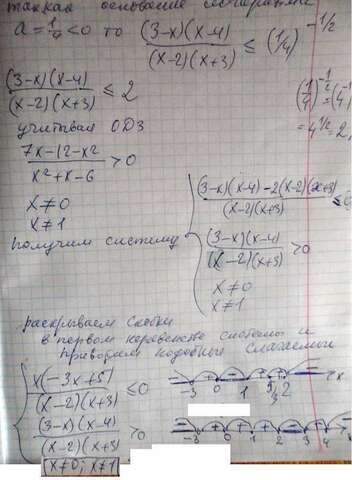 основание логарифма
a = 1/4 < 0 то (3-x)(x-4)/(x-2)(x+3) ≤ (1/4)^-1/2
(3-x)(x-4)/(x-2)(x+3) ≤ 2
(1/4)^-1/2 = (4^-1
= 4^1/2 = 2,
учитывая ОДЗ
7x-12-x²/x²+x-6 > 0
x ≠ 0
x ≠ 1
получим систему
(3-x)(x-4)-2(x-2)(x+3)/(x-2)(x+3) ≤ 0
(3-x)(x-4)/(x-2)(x+3) > 0
x ≠ 0
x ≠ 1
раскрываем скобки
в первом неравенстве системы и
приводим подобные слагаемые
x(-3x+5)/(x-2)(x+3) ≤ 0
-3 0 1 5/3 2 x
(3-x)(x-4)/(x-2)(x+3) > 0
-3 0 1 2 3 4
x≠0; x≠1